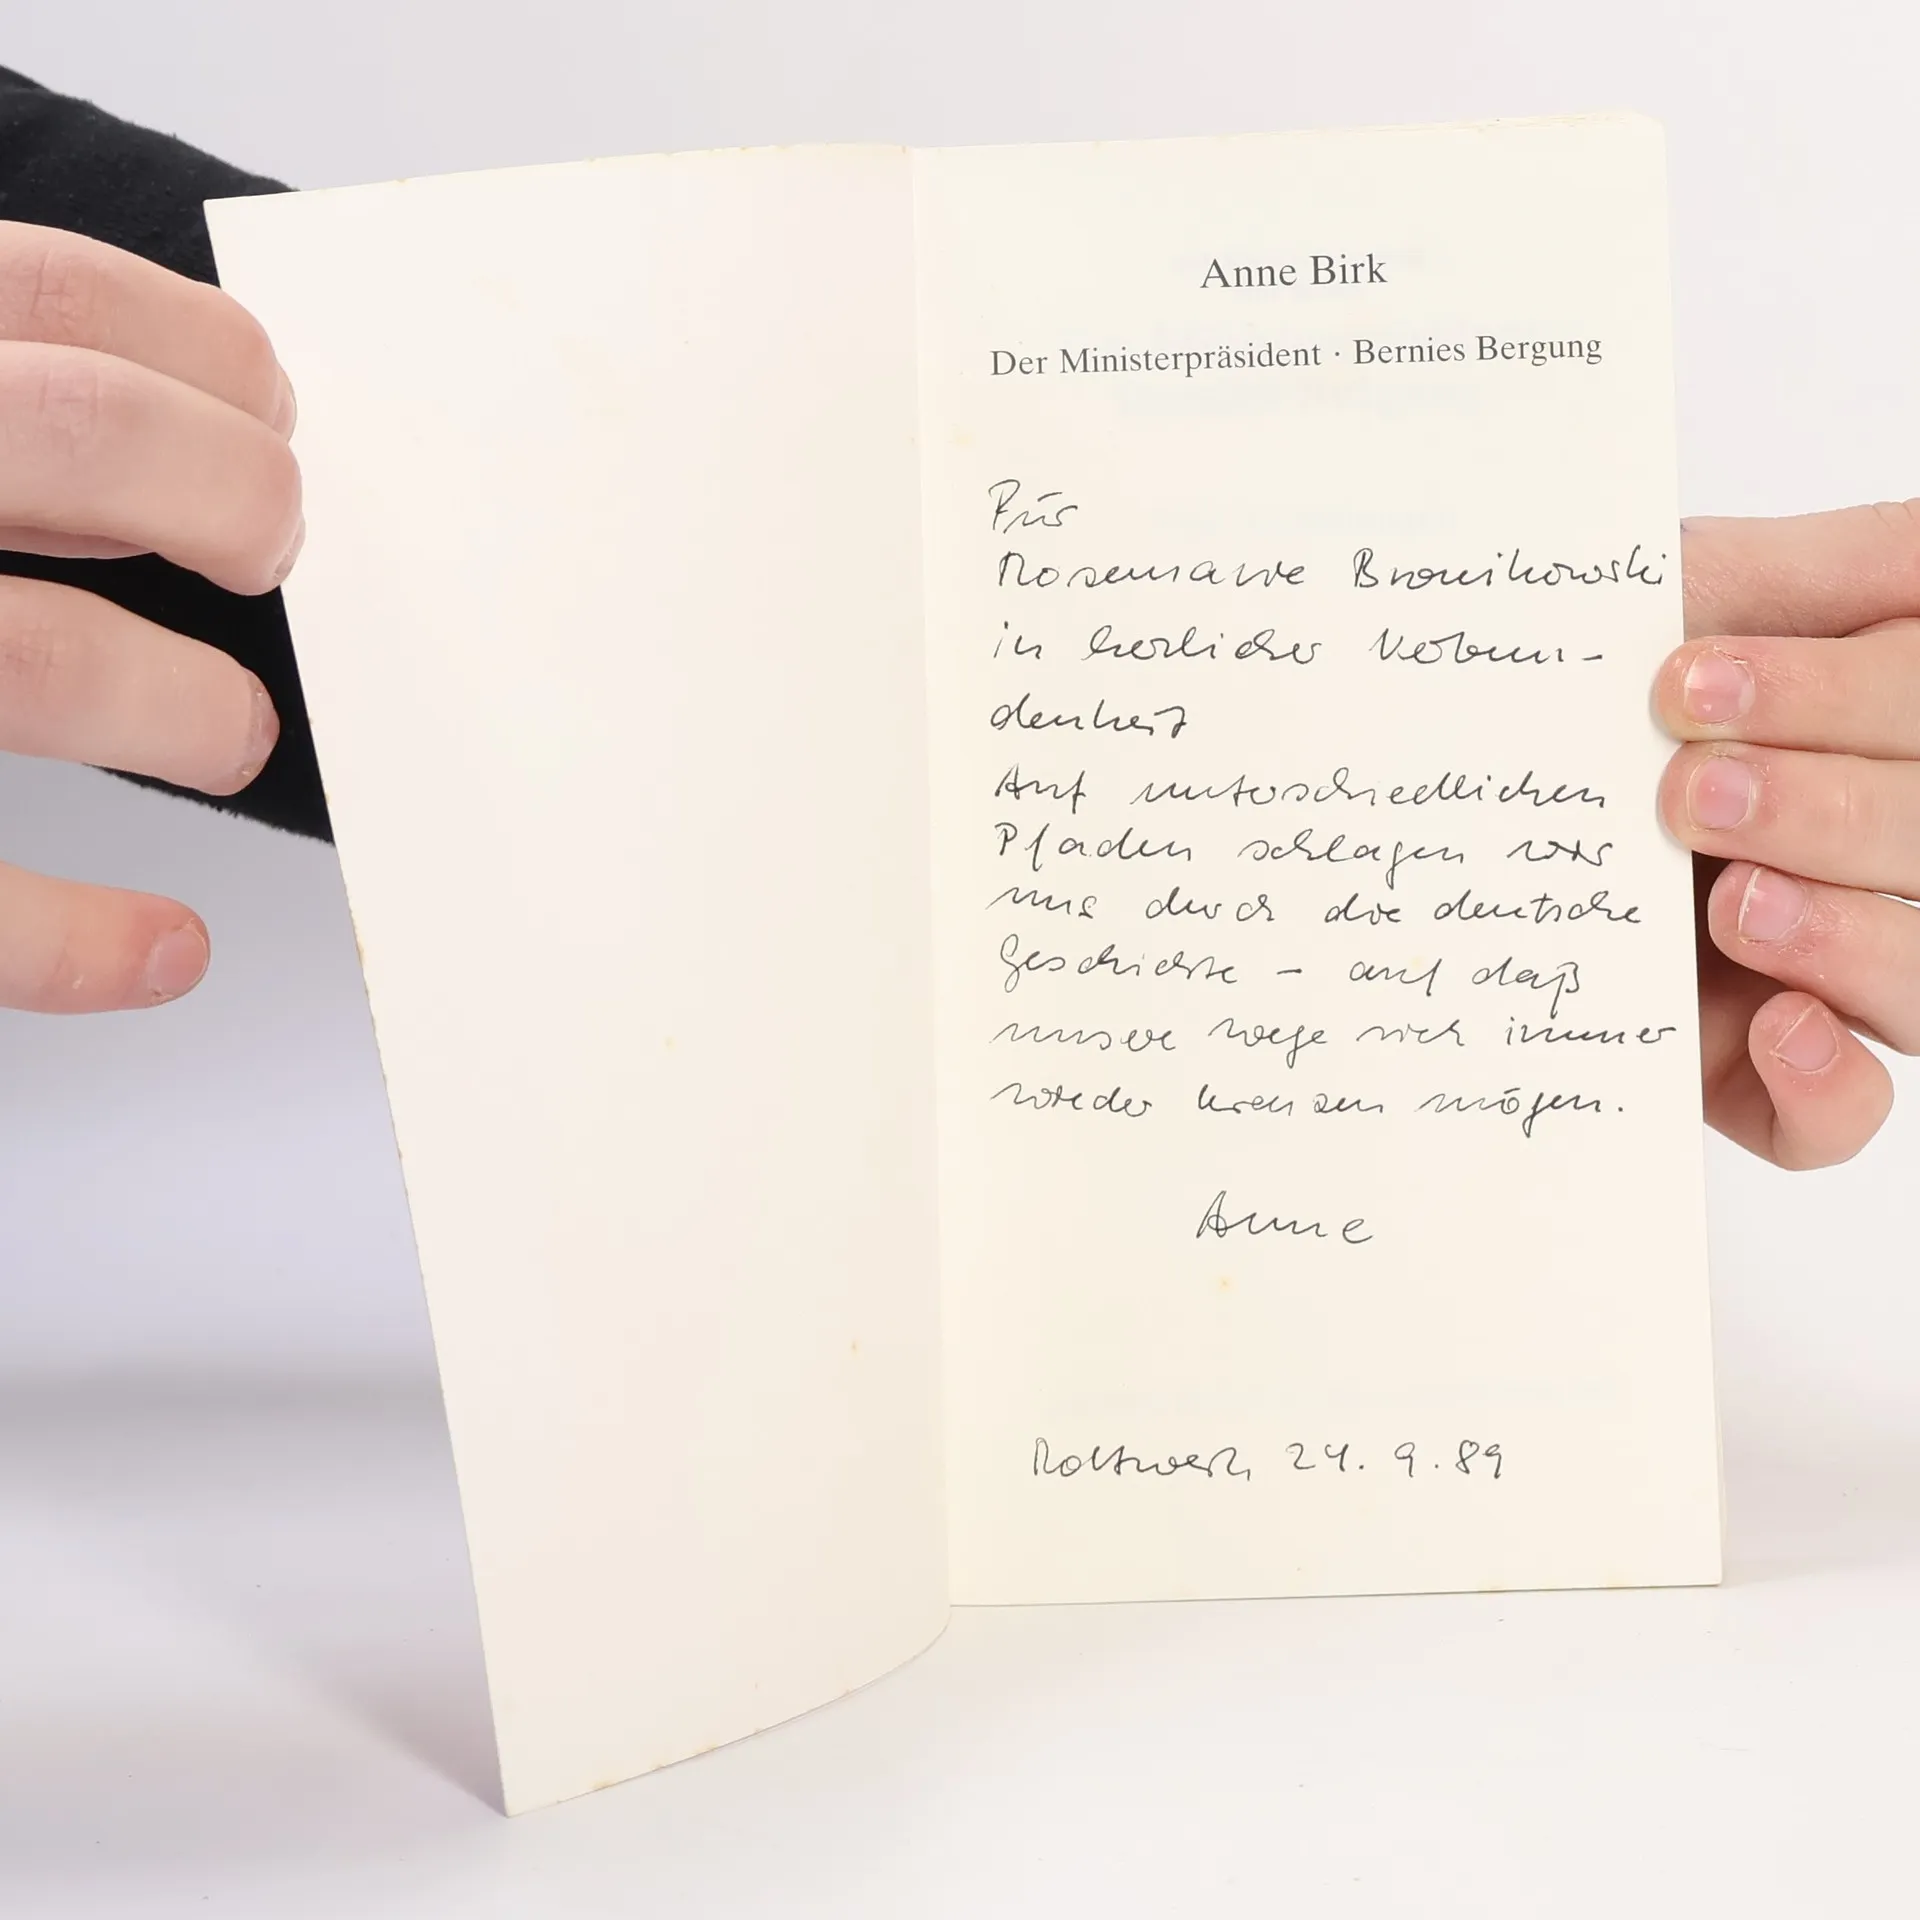 Anne Birk
Der Ministerpräsident · Bernies Bergung
Für
Rosemarie Bronikowski
in herzlicher Verbun-
denheit
Auf unterschiedlichen
Pfaden schlagen wir
uns durch die deutsche
Geschichte – auf daß
unsere Wege sich immer
wieder kreuzen mögen.
Anne
Rottweil, 24. 9. 89